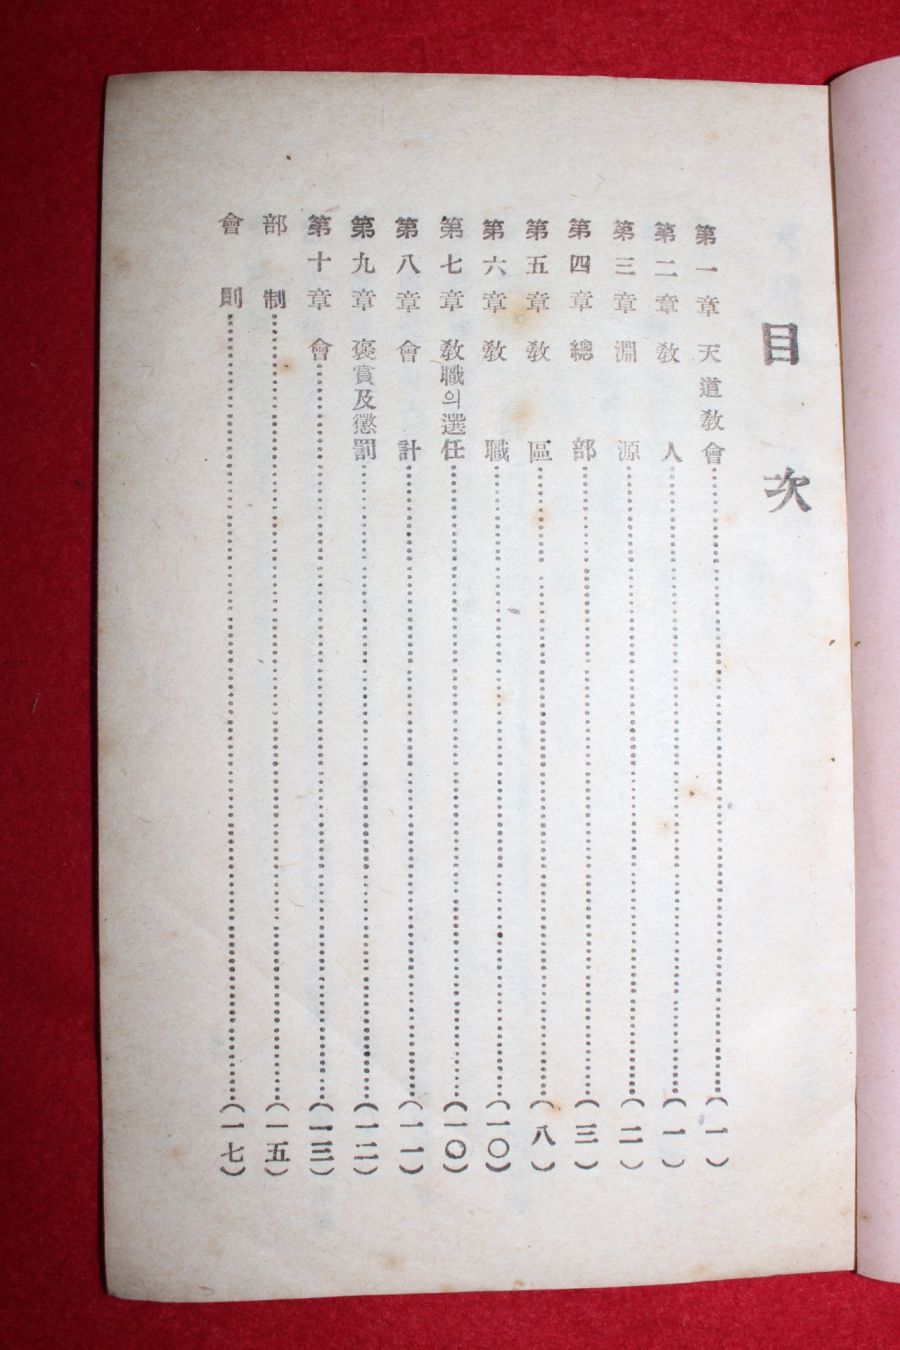 目次
第一章 天道敎會……(一)
第二章 敎人……(一)
第三章 淵源……(二)
第四章 總部……(三)
第五章 敎區……(八)
第六章 敎職……(一〇)
第七章 敎職의選任……(一〇)
第八章 會計……(一一)
第九章 褒賞及懲罰……(一二)
第十章 會……(一三)
部制……(一五)
會則……(一七)